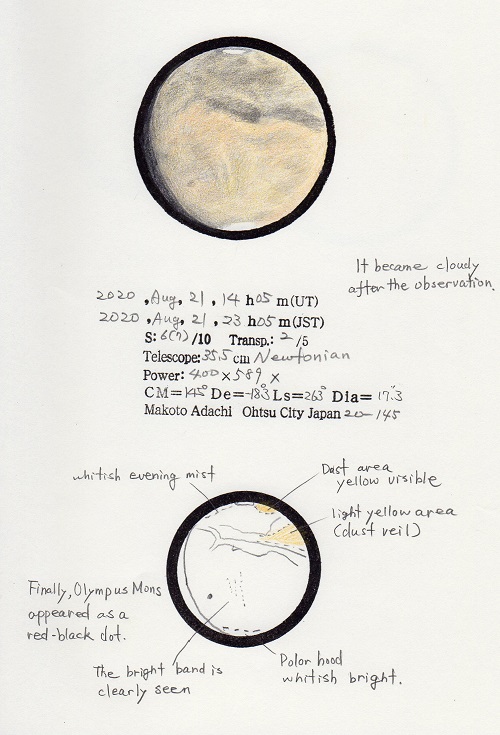 It became cloudy
after the observation.
2020 , Aug, 21 , 14 h 05 m (UT)
2020 , Aug, 21 , 23 h 05 m (JST)
S: 6(7) /10 Transp.: 2 /5
Telescope: 35.5 cm Newtonian
Power: 400 × 589 ×
CM= 145° De= -18.3° Ls= 263° Dia= 17.3"
Makoto Adachi Ohtsu City Japan 20-145
whitish evening mist
Dust area
yellow visible
light yellow area
(dust veil)
Finally, Olympus Mons
appeared as a
red-black dot.
The bright band is
clearly seen
Polor hood
whitish bright.